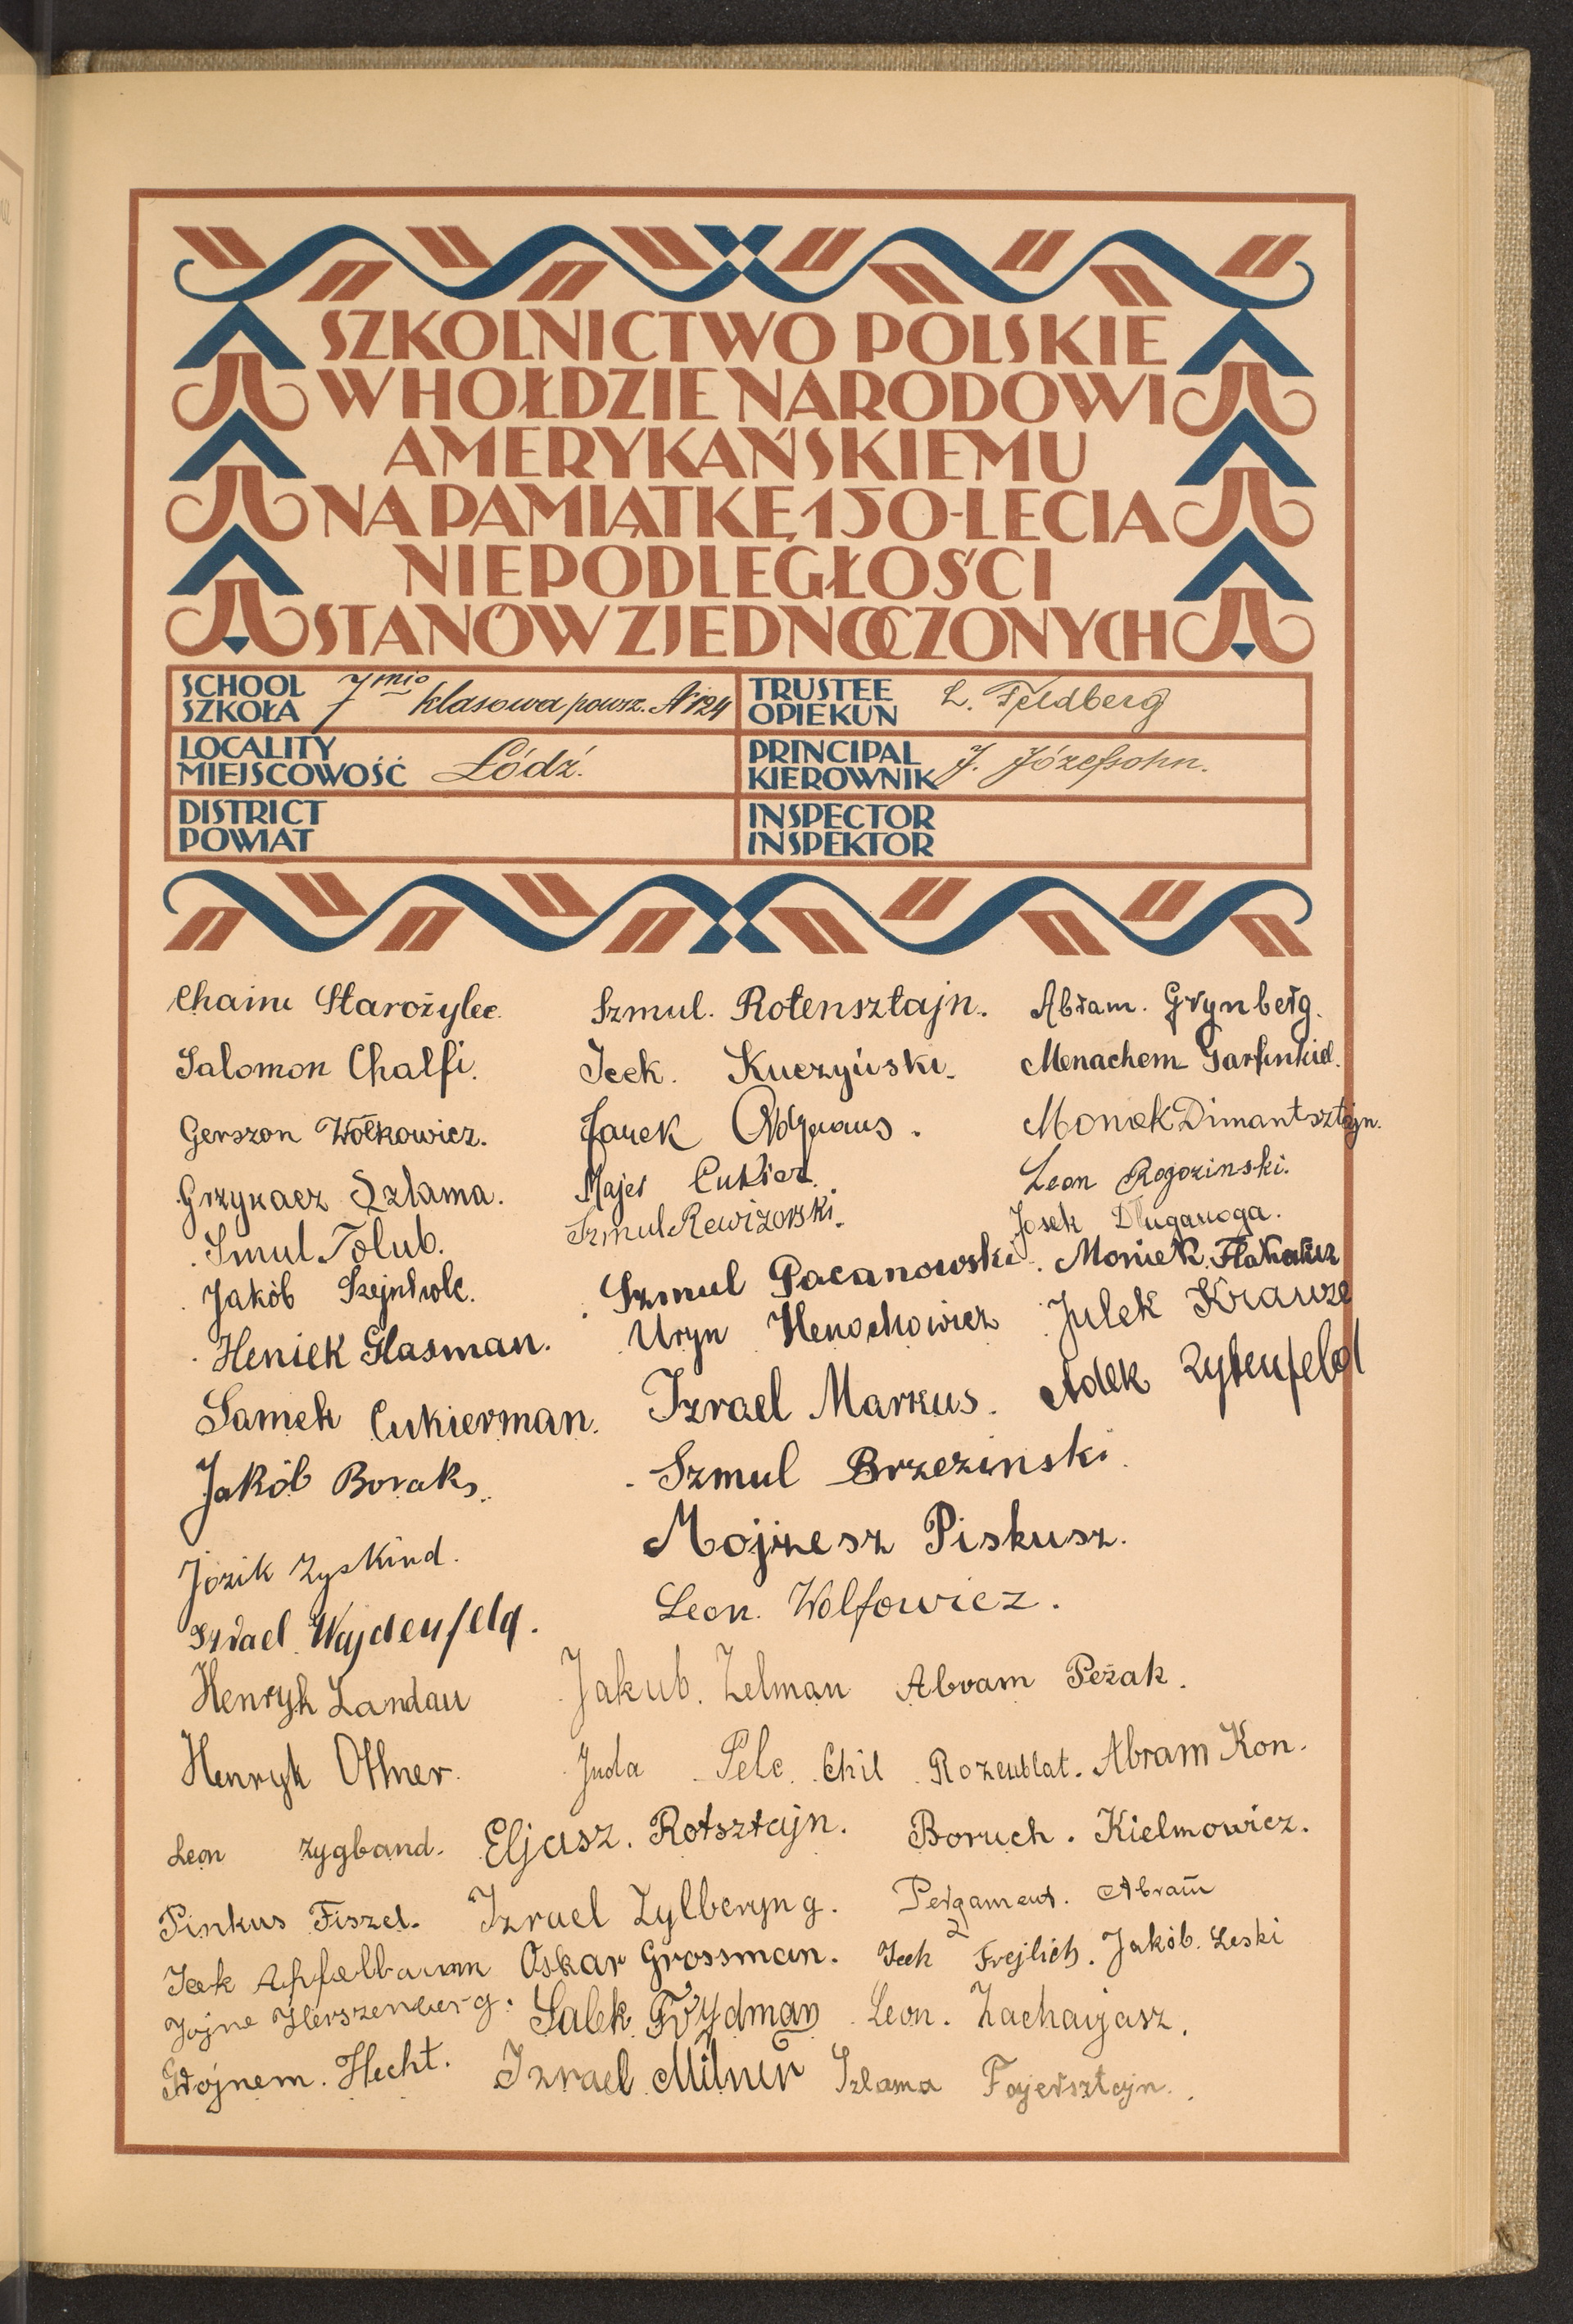 SZKOLNICTWO POLSKIE
W HOŁDZIE NARODOWI
AMERYKAŃSKIEMU
NA PAMIĄTKĘ 150-LECIA
NIEPODLEGŁOŚCI
STANÓW ZJEDNOCZONYCH
SCHOOL
SZKOŁA
7mio klasowa powsz. № 124
TRUSTEE
OPIEKUN
L. Feldberg
LOCALITY
MIEJSCOWOŚĆ
Łódź.
PRINCIPAL
KIEROWNIK
J. Józefsohn.
DISTRICT
POWIAT
INSPECTOR
INSPEKTOR
Chaim Starożylec. Szmul. Rotensztajn. Abram. Grynberg.
Salomon Chalfi. Icek. Kuczyński. Menachem Garfinkiel.
Gerszon Wołkowicz. Janek Monek Dimantsztajn.
Grzykacz Szlama. Majer Cukier. Leon Rogozinski.
Smul Tolub. Szmul Rewizorski. Josek Długanoga.
Jakób Szmul Pacanowski. Moniek
Heniek Glasman. Uryn Henochowicz Julek Krauze
Samek Cukierman. Izrael Markus. Adek Zytenfeld
Jakób Boraks. Szmul Brzezinski.
Józik Zyskind. Mojżesz Piskusz.
Izrael Wajdenfeld. Leon. Wolfowicz.
Henryk Landau Jakub. Zelman Abram Peżak.
Henryk Ottner. Juda Pelc. Chil Rozenblat. Abram Kon.
Leon Zygband. Eljasz. Rotsztajn. Boruch. Kielmowicz.
Pinkus Fiszel. Izrael Zylberyng. Pergament. Abram
Icek Apfelbaum Oskar Grossman. Icek Frejlich. Jakób. Leski
Jojne Herszenberg. Salek Frydman Leon. Zacharjasz.
Hecht. Izrael Milner Szlama Fajersztajn.